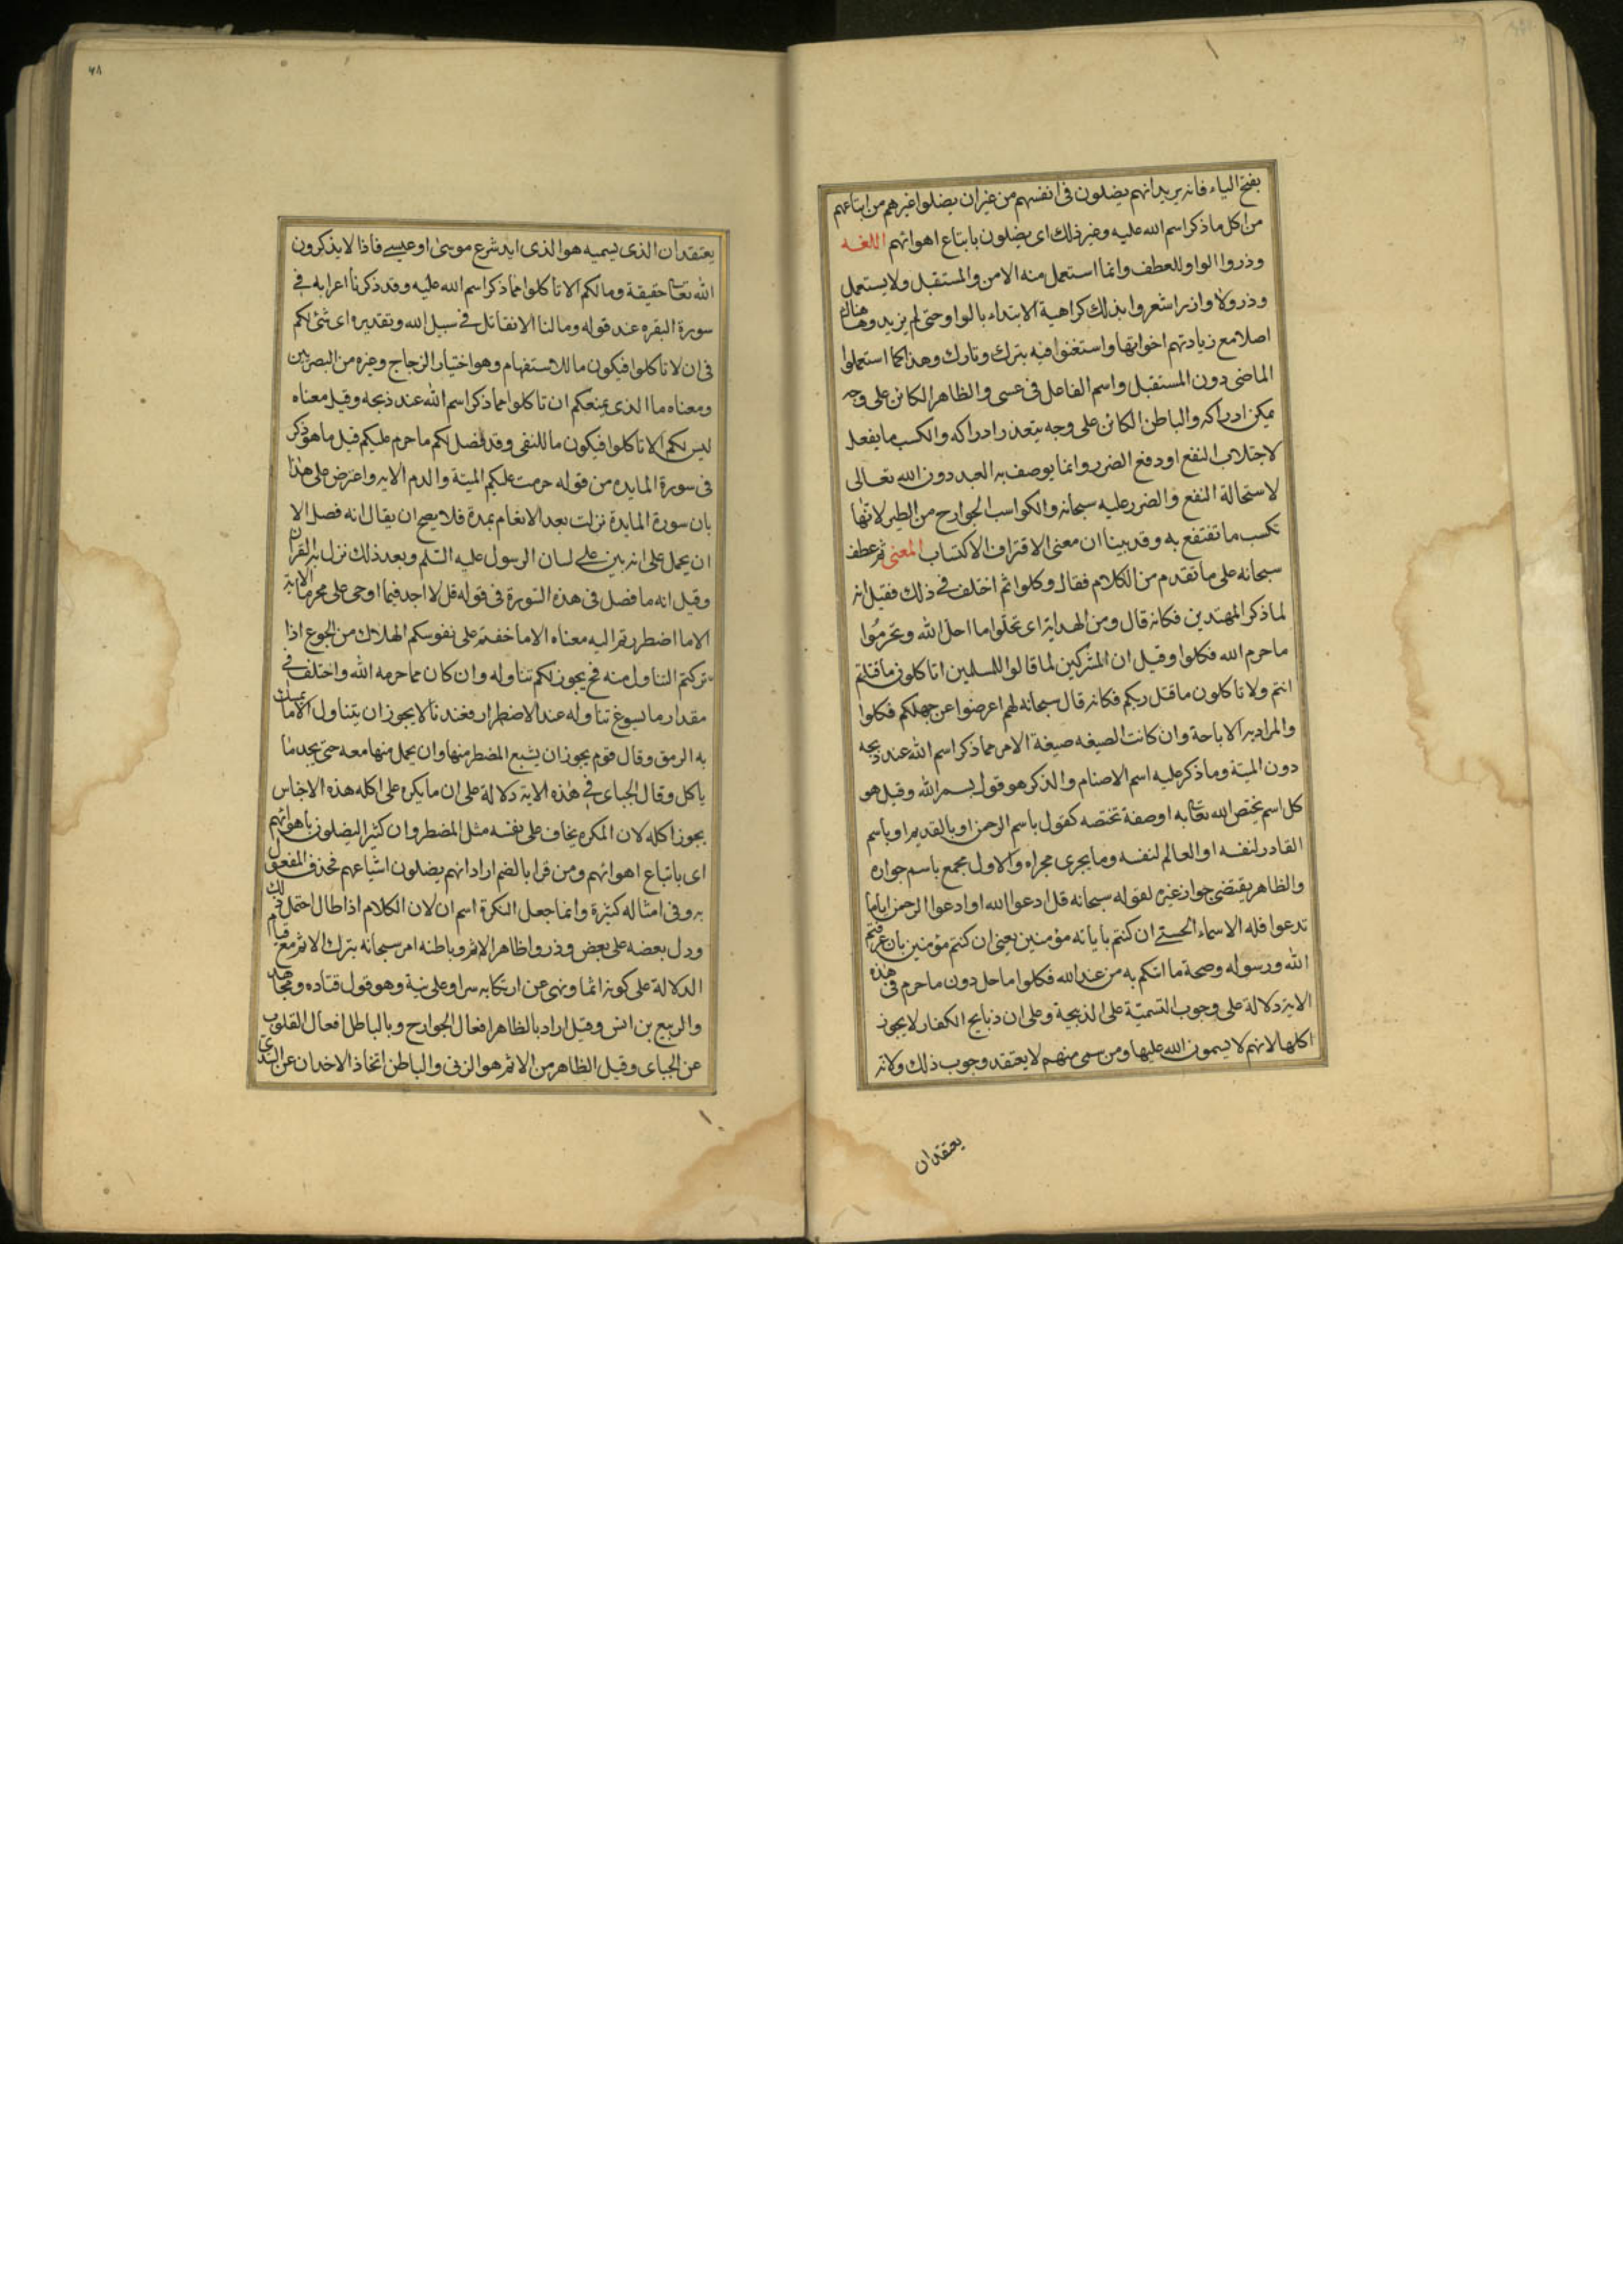 بفتح الياء فانه يريد انهم يضلون فى انفسهم من غير ان يضلوا غيرهم من اتباعهم
من اكل ما ذكر اسم الله عليه وغير ذلك اى يضلون باتباع اهوائهم اللغه
وذروا الواو للعطف وانما استعمل منه الامر والمستقبل ولا يستعمل
وذر ولا واذر اشعروا بذلك كراهية الابتداء بالواو حتى لم يزيدوها هناك
اصلا مع زيادتهم اخواتها واستغنوا فيه بترك وتارك وهذا كما استعملوا
الماضى دون المستقبل واسم الفاعل فى عسى والظاهر الكائن على وجه
يمكن ادراكه والباطن الكائن على وجه يتعذر ادراكه والكسب ما يفعل
لاجتلاب النفع او دفع الضرر وانما يوصف به العبد دون الله تعالى
لاستحالة النفع والضرر عليه سبحانه والكواسب الجوارح من الطير لانها
تكسب ما تنتفع به وقد بينا ان معنى الاقتراف الاكتساب المعنى ثم عطف
سبحانه على ما تقدم من الكلام فقال وكلوا ثم اختلف فى ذلك فقيل انه
لما ذكر المهتدين فكانه قال ومن الهداية اى تحلوا ما احل الله وتحرموا
ما حرم الله فكلوا وقيل ان المشركين لما قالوا للمسلمين اتاكلون ما قتلتم
انتم ولا تاكلون ما قتل ربكم فكانه قال سبحانه لهم اعرضوا عن جهلكم فكلوا
والمراد به الاباحة وان كانت الصيغه صيغة الامر مما ذكر اسم الله عند ذبحه
دون الميتة وما ذكر عليه اسم الاصنام والذكر هو قول بسم الله وقيل هو
كل اسم يختص الله تعا به او صفة تختصه كقول باسم الرحمن او بالقديم او باسم
القادر لنفسه او العالم لنفسه وما يجرى مجراه والاول مجمع باسم جوازه
والظاهر يقتضى جواز غيره لقوله سبحانه قل ادعوا الله او ادعوا الرحمن اياما
تدعوا فله الاسماء الحسنى ان كنتم باياته مؤمنين يعنى ان كنتم مؤمنين بان عرفتم
الله ورسوله وصحة ما اتيكم به من عند الله فكلوا ما حل دون ما حرم فى هذه
الاية دلالة على وجوب التسمية على الذبيحة وعلى ان ذبايح الكفار لا يجوز
اكلها لانهم لا يسمون الله عليها ومن سمى منهم لا يعتقد وجوب ذلك ولانه
يعتقد ان
٤٨
يعتقد ان الذى يسميه هو الذى ايد شرع موسى او عيسى فاذا لا يذكرون
الله تعا حقيقة وما لكم الا تاكلوا مما ذكر اسم الله عليه وقد ذكرنا اعرابه فى
سورة البقره عند قوله وما لنا الا نقاتل فى سبيل الله وتقديره اى شئ لكم
فى ان لا تاكلوا فيكون ما للاستفهام وهو اختيار الزجاج وغيره من البصريين
ومعناه ما الذى يمنعكم ان تاكلوا مما ذكر اسم الله عند ذبحه وقيل معناه
ليس لكم الا تاكلوا فيكون ما للنفى وقد فصل لكم ما حرم عليكم قيل ما هو ذكر
فى سورة المايده من قوله حرمت عليكم الميتة والدم الايه واعترض على هذا
بان سورة المايدة نزلت بعد الانعام بمدة فلا يصح ان يقال انه فصل الا
ان يحمل على انه بين على لسان الرسول عليه السلم وبعد ذلك نزل به القران
وقيل انه ما فصل فى هذه السورة فى قوله قل لا اجد فيما اوحى على محرما الاية
الا ما اضطررتم اليه معناه الا ما خفتم على نفوسكم الهلاك من الجوع اذا
تركتم التناول منه فح يجوز لكم تناوله وان كان مما حرمه الله واختلف فى
مقدار ما يسوغ تناوله عند الاضطرار فعندنا لا يجوز ان يتناول الا ما يمسك
به الرمق وقال قوم يجوز ان يشبع المضطر منها وان يحمل منها معه حتى يجد ما
ياكل وقال الجباى فى هذه الاية دلالة على ان ما يكره على اكله هذه الاجناس
يجوز اكله لان المكره يخاف على نفسه مثل المضطر وان كثيرا ليضلون باهوائهم
اى باتباع اهوائهم ومن قرا بالضم اراد انهم يضلون اشياعهم فحذف المفعول
به وفى امثاله كثيرة وانما جعل النكرة اسم ان لان الكلام اذا طال احتمل ذلك
ودل بعضه على بعض وذروا ظاهر الاثم وباطنه امر سبحانه بترك الاثم مع قيام
الدلالة على كونه اثما ونهى عن ارتكابه سرا وعلانية وهو قول قتاده ومجاهد
والربيع بن انس وقيل اراد بالظاهر افعال الجوارح وبالباطل افعال القلوب
عن الجباى وقيل الظاهر من الاثم هو الزنى والباطن اتخاذ الاخدان عن السدى